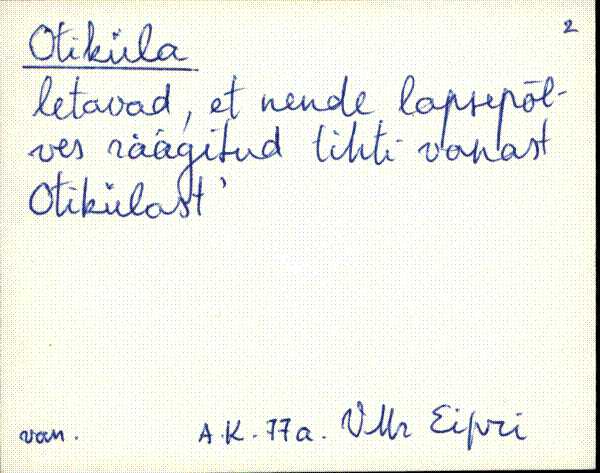 Otiküla 2
letavad, et nende lapsepõl-
ves räägitud tihti vanast
Otikülast'
van. A.K. 77a. VMr Eipri